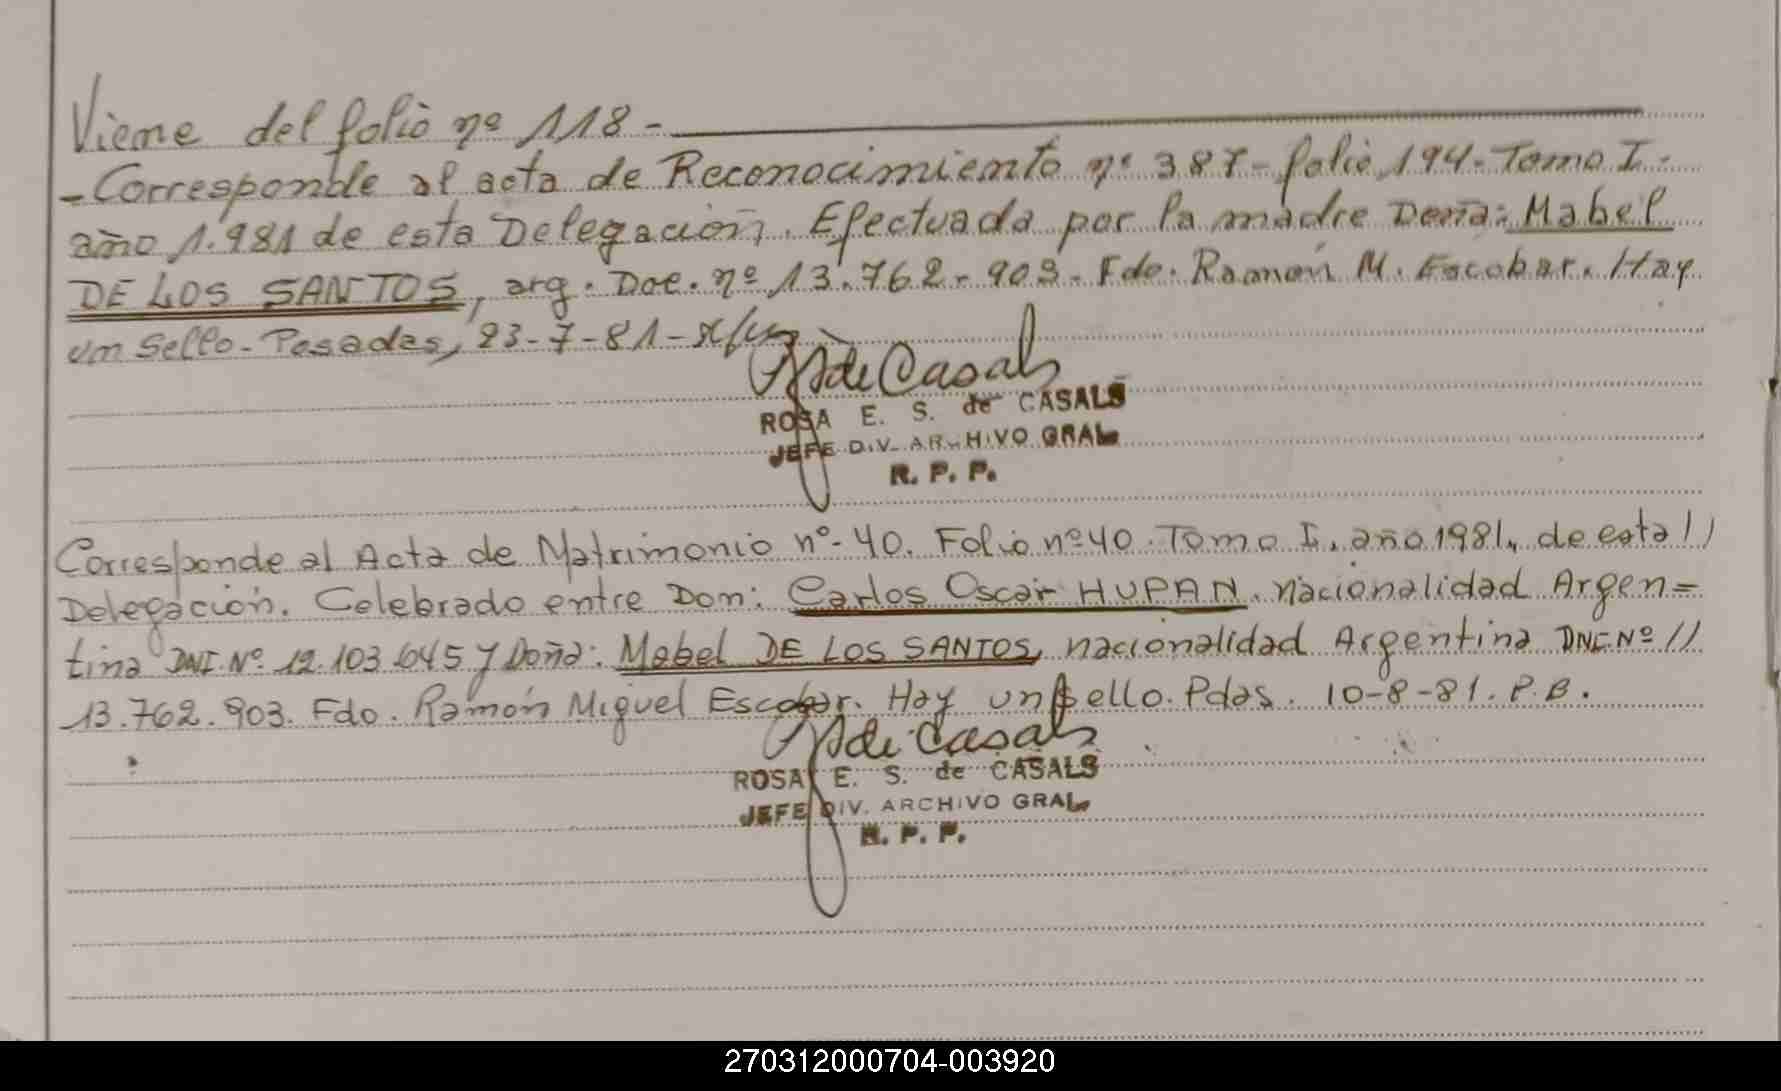 Viene del folio nº 118 -
- Corresponde al acta de Reconocimiento nº 387 - folio 194 - Tomo I -
año 1.981 de esta Delegación. Efectuada por la madre Doña: Mabel
DE LOS SANTOS, arg. Doc. nº 13.762.903 - Fdo. Ramón M. Escobar. Hay
un Sello - Posadas, 23-7-81 -
de Casals
ROSA E. S. de CASALS
JEFE DIV. ARCHIVO GRAL
R. P. P.
Corresponde al Acta de Matrimonio nº 40. Folio nº 40. Tomo I. año 1981, de esta //
Delegación. Celebrado entre Don: Carlos Oscar HUPAN. nacionalidad Argen=
tina DNI. Nº. 12.103.645 y Doña: Mabel DE LOS SANTOS, nacionalidad Argentina DNI. Nº //
13.762.903. Fdo. Ramón Miguel Escobar. Hay un Sello. Pdas. 10-8-81. P.B.
de Casals
ROSA E. S. de CASALS
JEFE DIV. ARCHIVO GRAL
R. P. P.
270312000704-003920